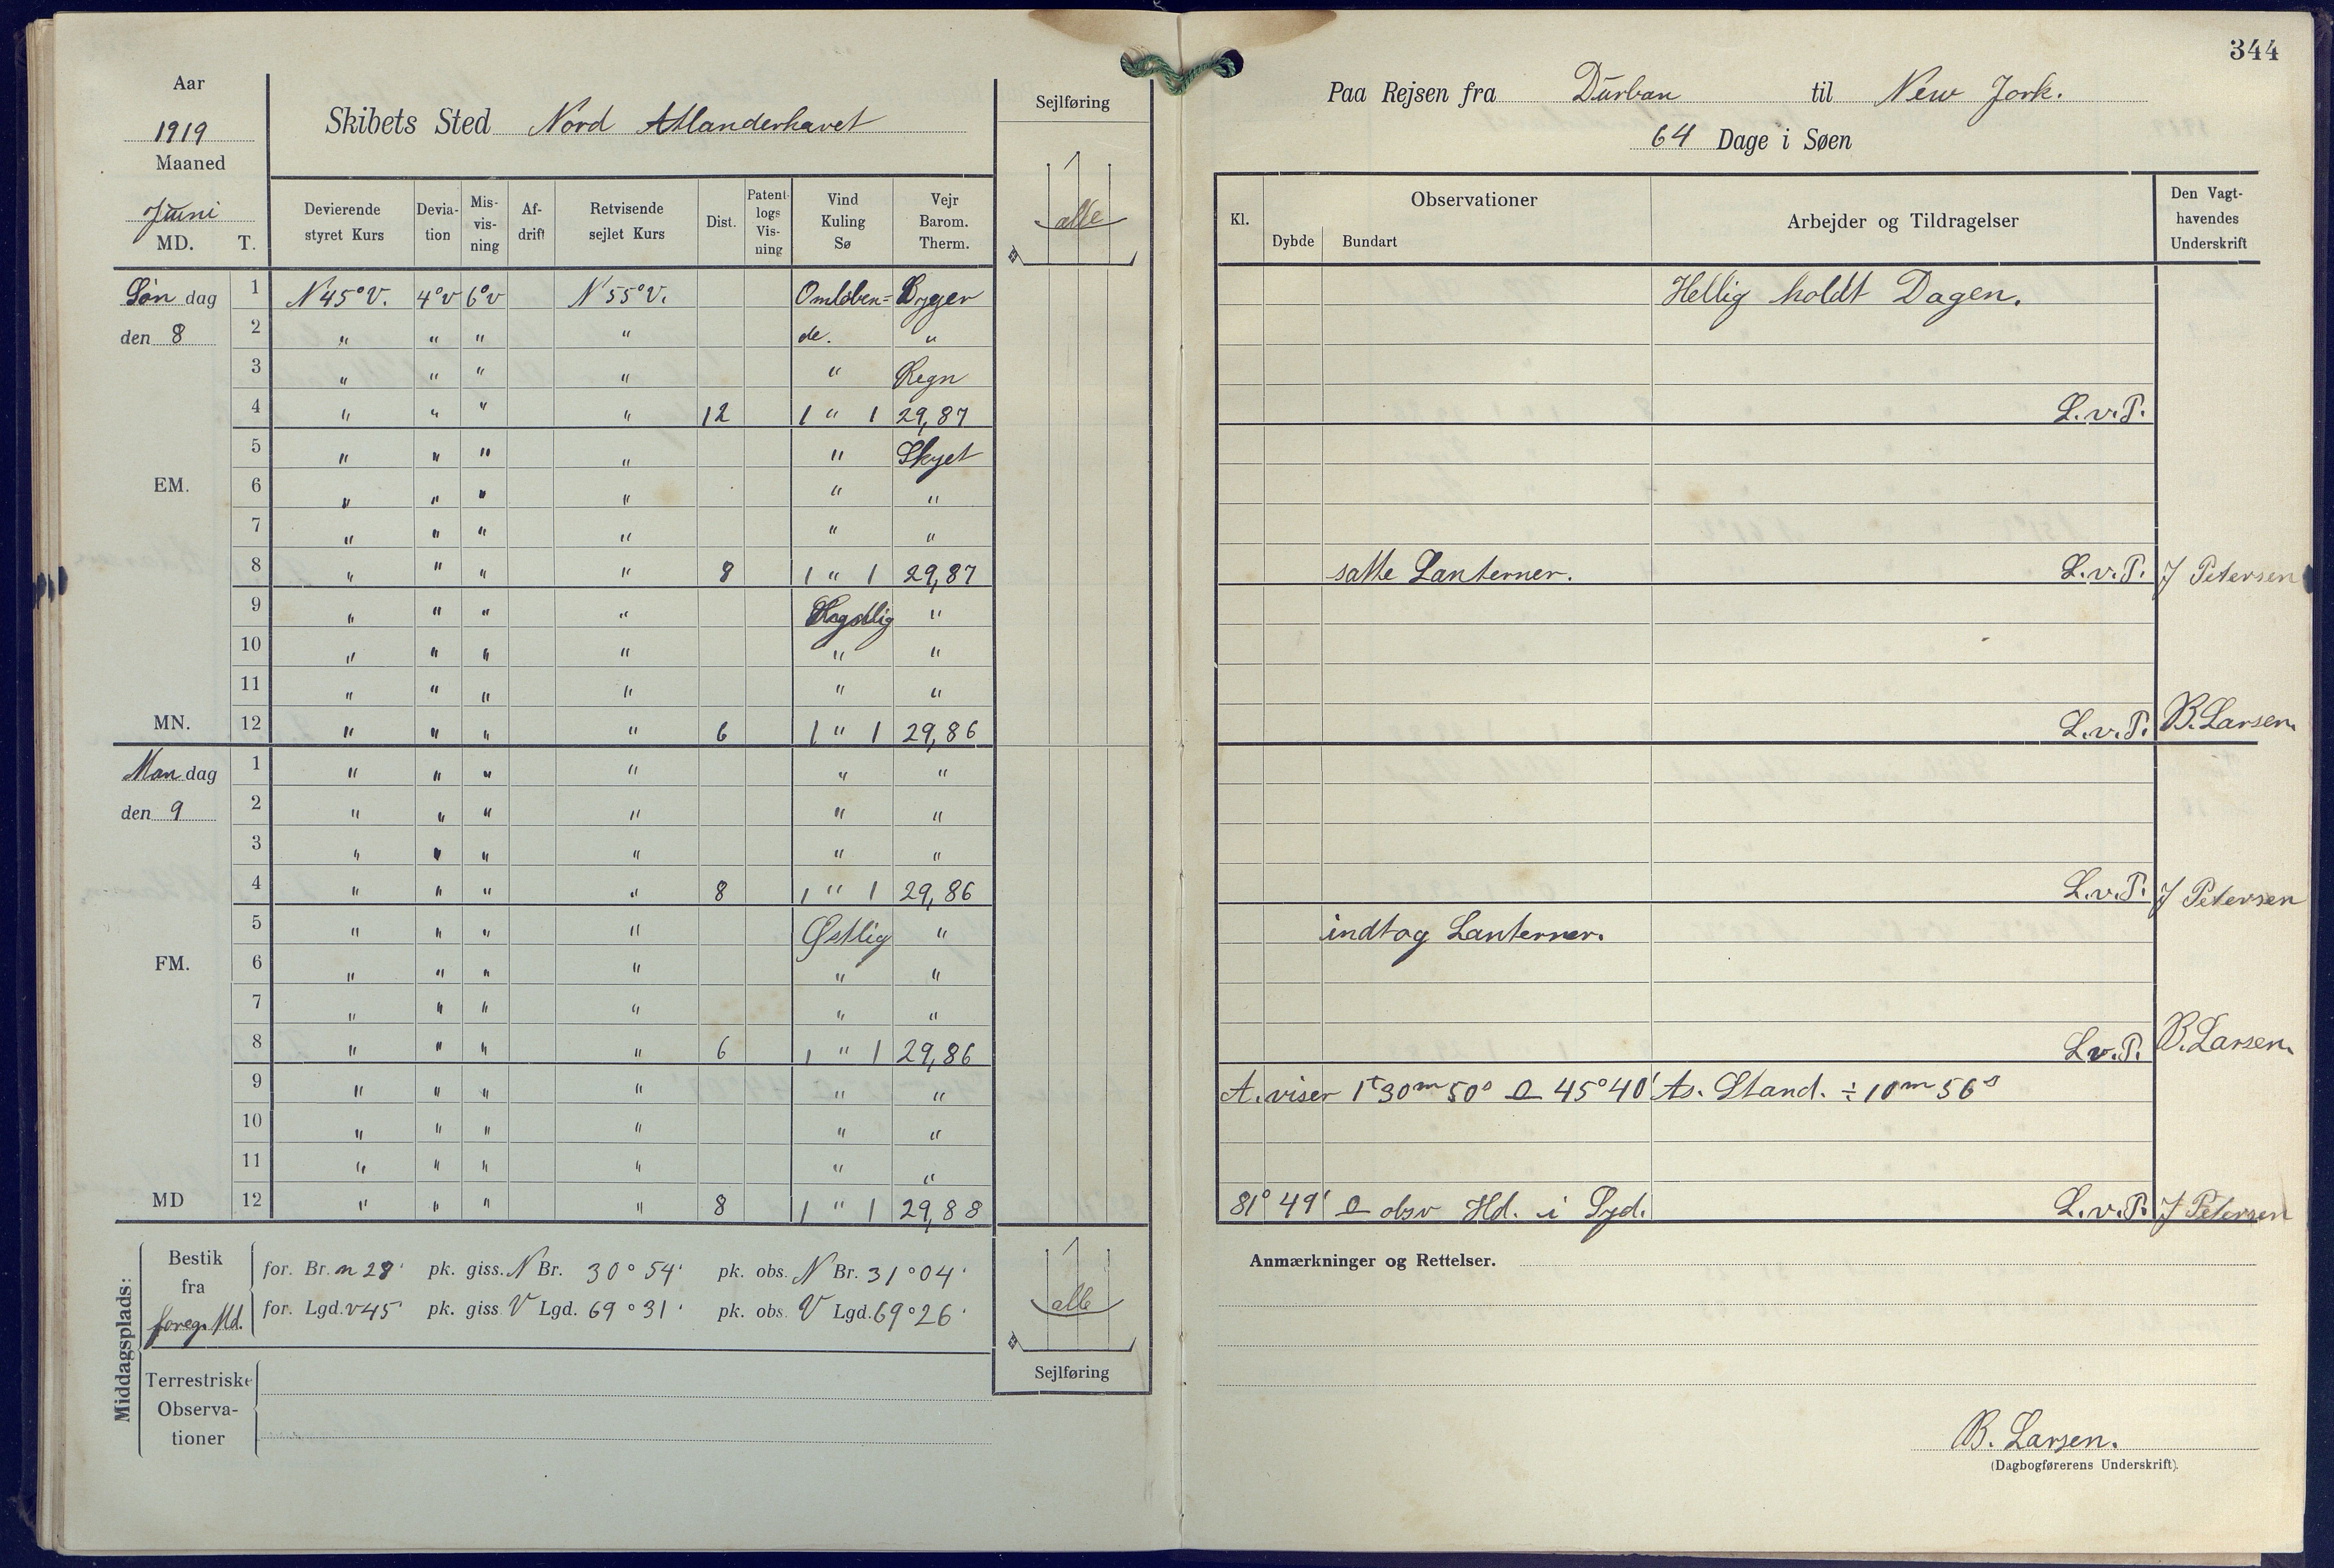 344
Aar
1919
Maaned
Juni
MD. T.
Skibets Sted Nord Atlanderhavet
Sejlføring
alle
Devierende styret Kurs
Devia-tion
Mis-vis-ning
Af-drift
Retvisende sejlet Kurs
Dist.
Patent-logs Vis-ning
Vind Kuling Sø
Vejr Barom. Therm.
Søn dag 1 N 45° V. 4° v 6° v N 55° V. Omløben= Byger
den 8 2 " " " " de. "
3 " " " " " Regn
4 " " " " 12 1 " 1 29,87
5 " " " " " Skyet
EM. 6 " " " " " "
7 " " " " " "
8 " " " " 8 1 " 1 29,87
9 " " " " "
10 " " " " " "
11 " " " " " "
MN. 12 " " " " 6 1 " 1 29,86
Man dag 1 " " " " " "
den 9 2 " " " " " "
3 " " " " " "
4 " " " " 8 1 " 1 29,86
5 " " " " Østlig "
FM. 6 " " " " " "
7 " " " " " "
8 " " " " 6 1 " 1 29,86
9 " " " " " "
10 " " " " " "
11 " " " " " "
MD 12 " " " " 8 1 " 1 29,88
Middagsplads:
Bestik
fra
foreg. Md.
for. Br. n 28' pk. giss. N Br. 30° 54' pk. obs. N Br. 31° 04'
for. Lgd. v 45' pk. giss V Lgd. 69° 31' pk. obs. V Lgd. 69° 26'
Terrestriske
Observa-
tioner
alle
Sejlføring
Paa Rejsen fra Durban til New Jork.
64 Dage i Søen
Kl.
Observationer
Dybde Bundart
Arbejder og Tildragelser
Den Vagt-
havendes
Underskrift
Hellig holdt Dagen.
L.v.P.
satte Lanterner. L.v.P. J Petersen
L.v.P. B. Larsen.
L.v.P. J Petersen
indtog Lanterner.
L.v.P. B. Larsen.
A. viser 1t 30m 50s 45° 40' As. Stand. ÷ 10m 56s
81° 49' obsv Hd. i Syd. L.v.P. J Petersen
Anmærkninger og Rettelser.
B. Larsen.
(Dagbogførerens Underskrift).